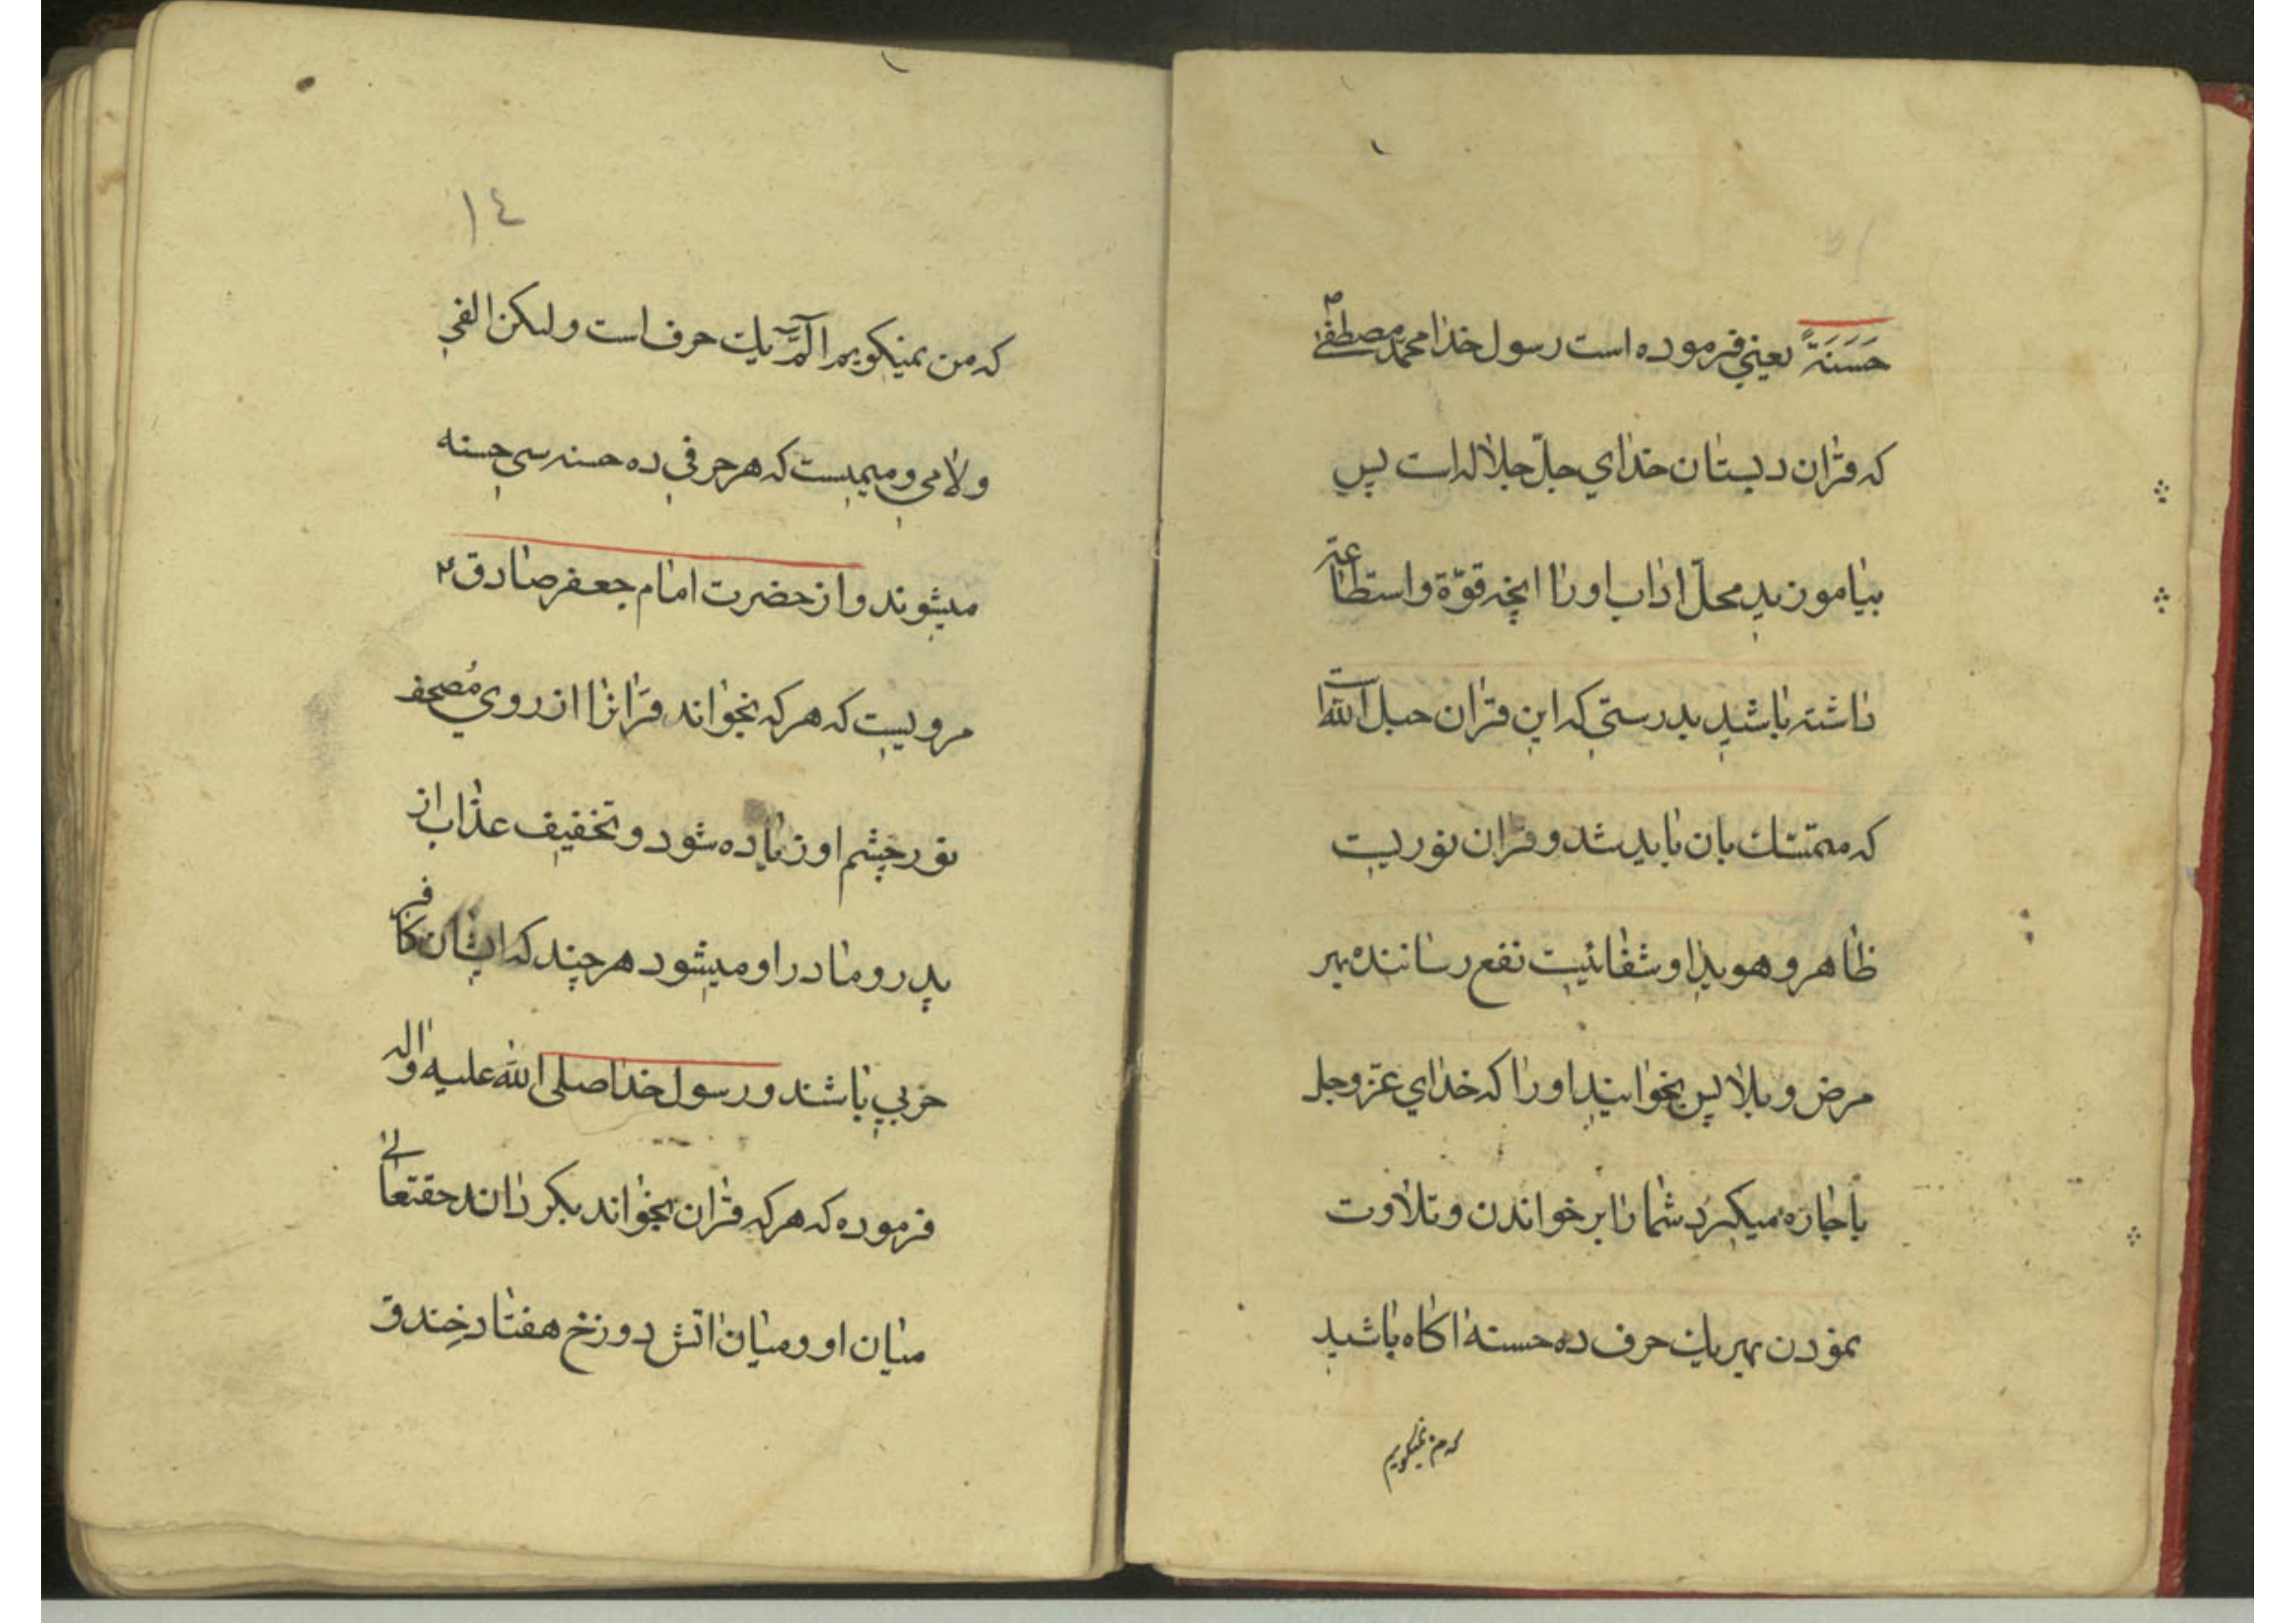 حَسَنَةً یعنی فرموده است رسول خدا محمد مصطفی ص
که قرآن دبستان خدای جلّ جلاله است پس
بیاموزید محلّ اداب اورا انچه قوّة و استطاعة
داشته باشید بدرستی که این قران حبل الله است
که متمسّك بان باید شد و قران نوریست
ظاهر و هویدا و شفائیست نفع رساننده بهر
مرض و بلا پس بخوانید اورا که خدای عزّ و جل
باجاره میکیرد شما را بر خواندن و تلاوت
نمودن بهر یك حرف ده حسنه اکاه باشید
که من نمیکویم
۱٤
که من نمیکویم الٓمّٓ یك حرف است ولیکن الفی
ولامی و میمیست که هر حرفی ده حسنه سی حسنه
میشوند و از حضرت امام جعفر صادق ع
مرویست که هر که بخواند قرانرا از روی مُصحف
نور چشم او زیاده شود و تخفیف عذاب از
پدر و مادر او میشود هر چند که ایشان کافر
حربی باشند و رسول خدا صلی الله علیه واله
فرموده که هر که قران بخواند بکرداند حقتعالی
میان او و میان اتش دوزخ هفتاد خندق